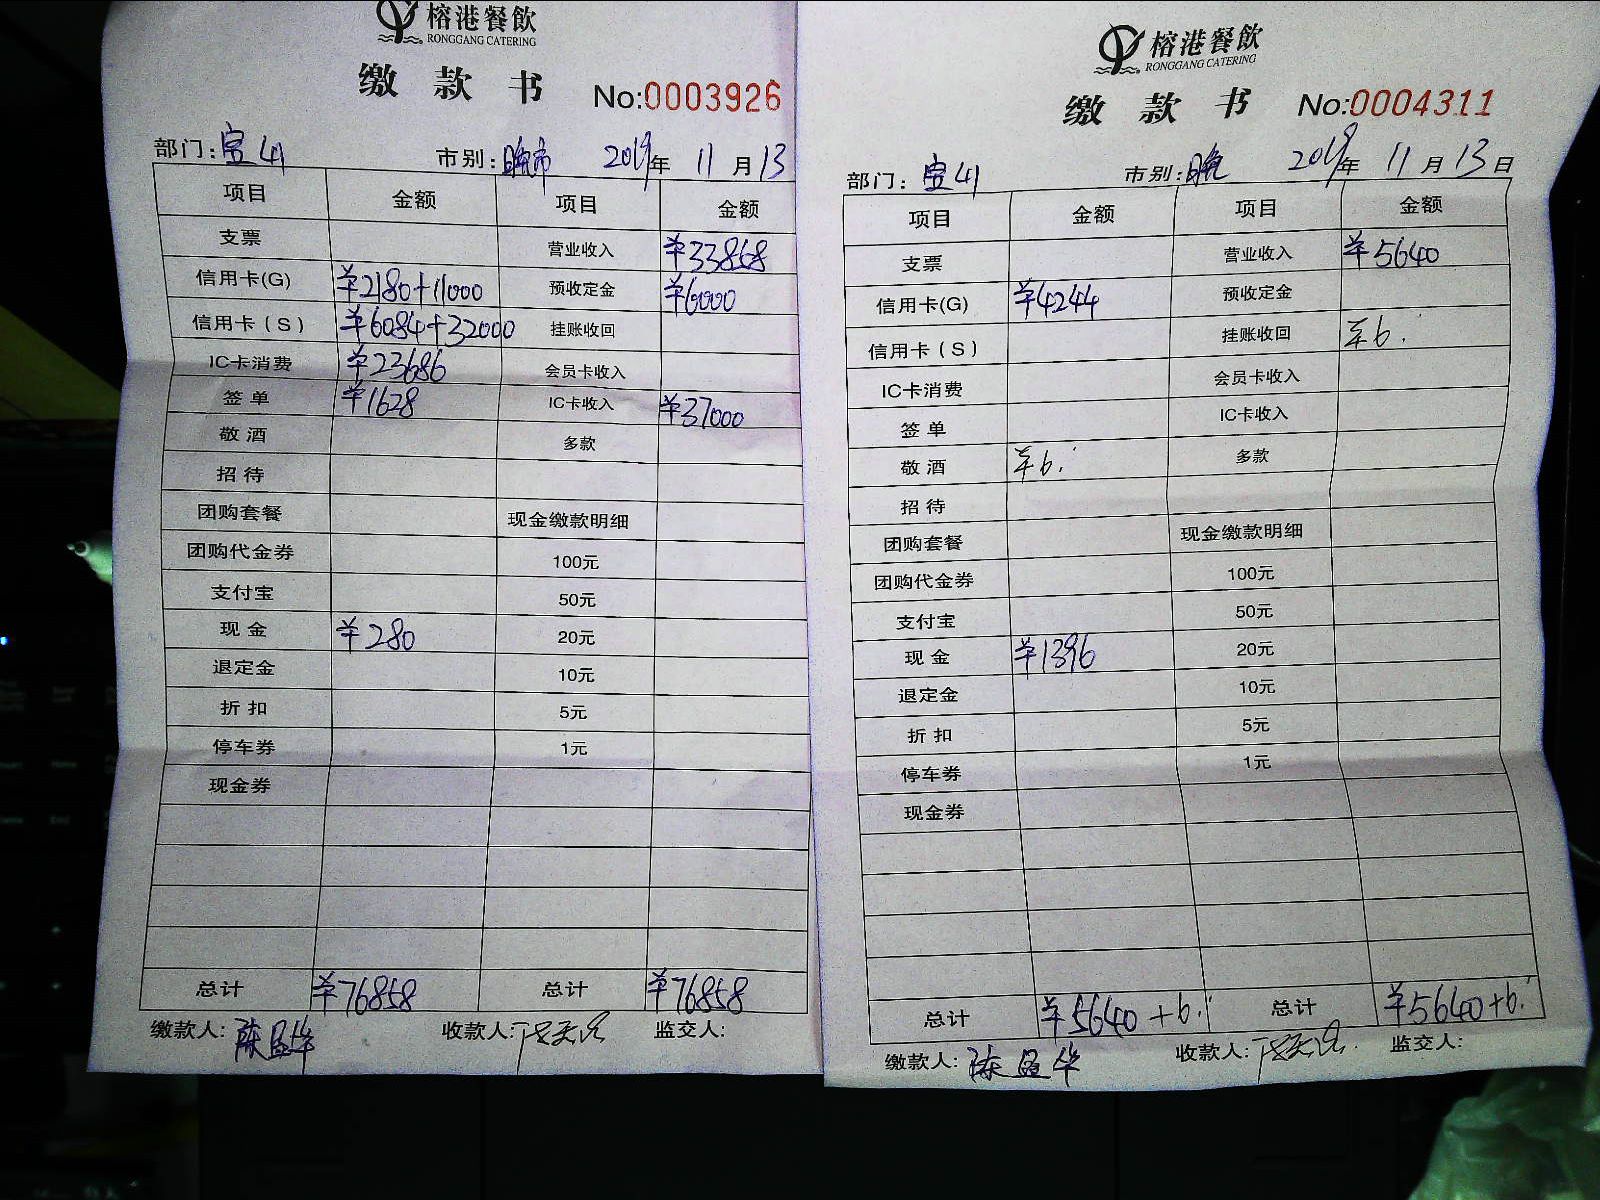 榕港餐飲
RONGGANG CATERING
缴款书 No:0003926
部门:宝山 市别:晚市 2019年 11月13
项目 金额 项目 金额
支票 营业收入 ¥33858
信用卡(G) ¥2180+11000 预收定金 ¥6000
信用卡(S) ¥6084+32000 挂账收回
IC卡消费 ¥23686 会员卡收入
签单 ¥1628 IC卡收入 ¥37000
敬酒 多款
招待
团购套餐 现金缴款明细
团购代金券 100元
支付宝 50元
现金 ¥280 20元
退定金 10元
折扣 5元
停车券 1元
现金券
总计 ¥76858 总计 ¥76858
缴款人: 收款人: 监交人:
榕港餐飲
RONGGANG CATERING
缴款书 No:0004311
部门:宝山 市别:晚 2019年 11月13日
项目 金额 项目 金额
支票 营业收入 ¥5640
信用卡(G) ¥4244 预收定金
信用卡(S) 挂账收回 ¥6.
IC卡消费 会员卡收入
签单 IC卡收入
敬酒 ¥6. 多款
招待
团购套餐 现金缴款明细
团购代金券 100元
支付宝 50元
现金 ¥1396 20元
退定金 10元
折扣 5元
停车券 1元
现金券
总计 ¥5640+6. 总计 ¥5640+6.
缴款人: 收款人: 监交人: